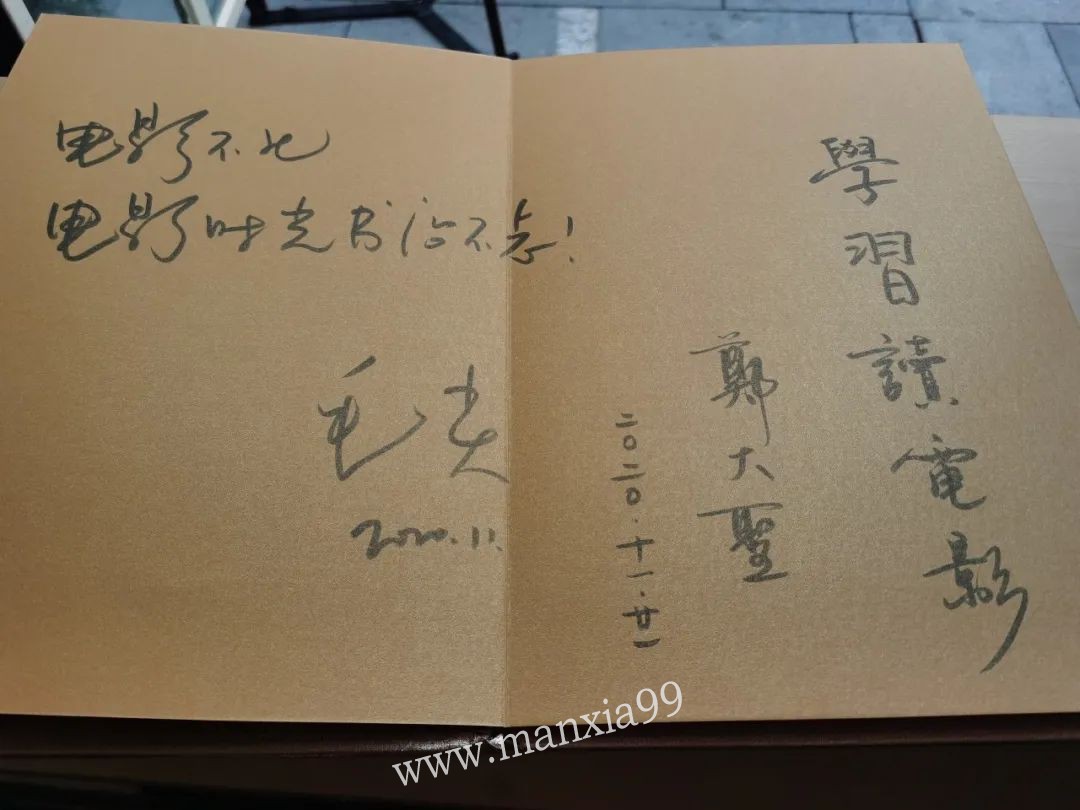 电影不死
电影时光书店不忘！
毛尖
2020.11.
學習讀電影
鄭大聖
二〇二〇·十一·廿一
www.manxia99